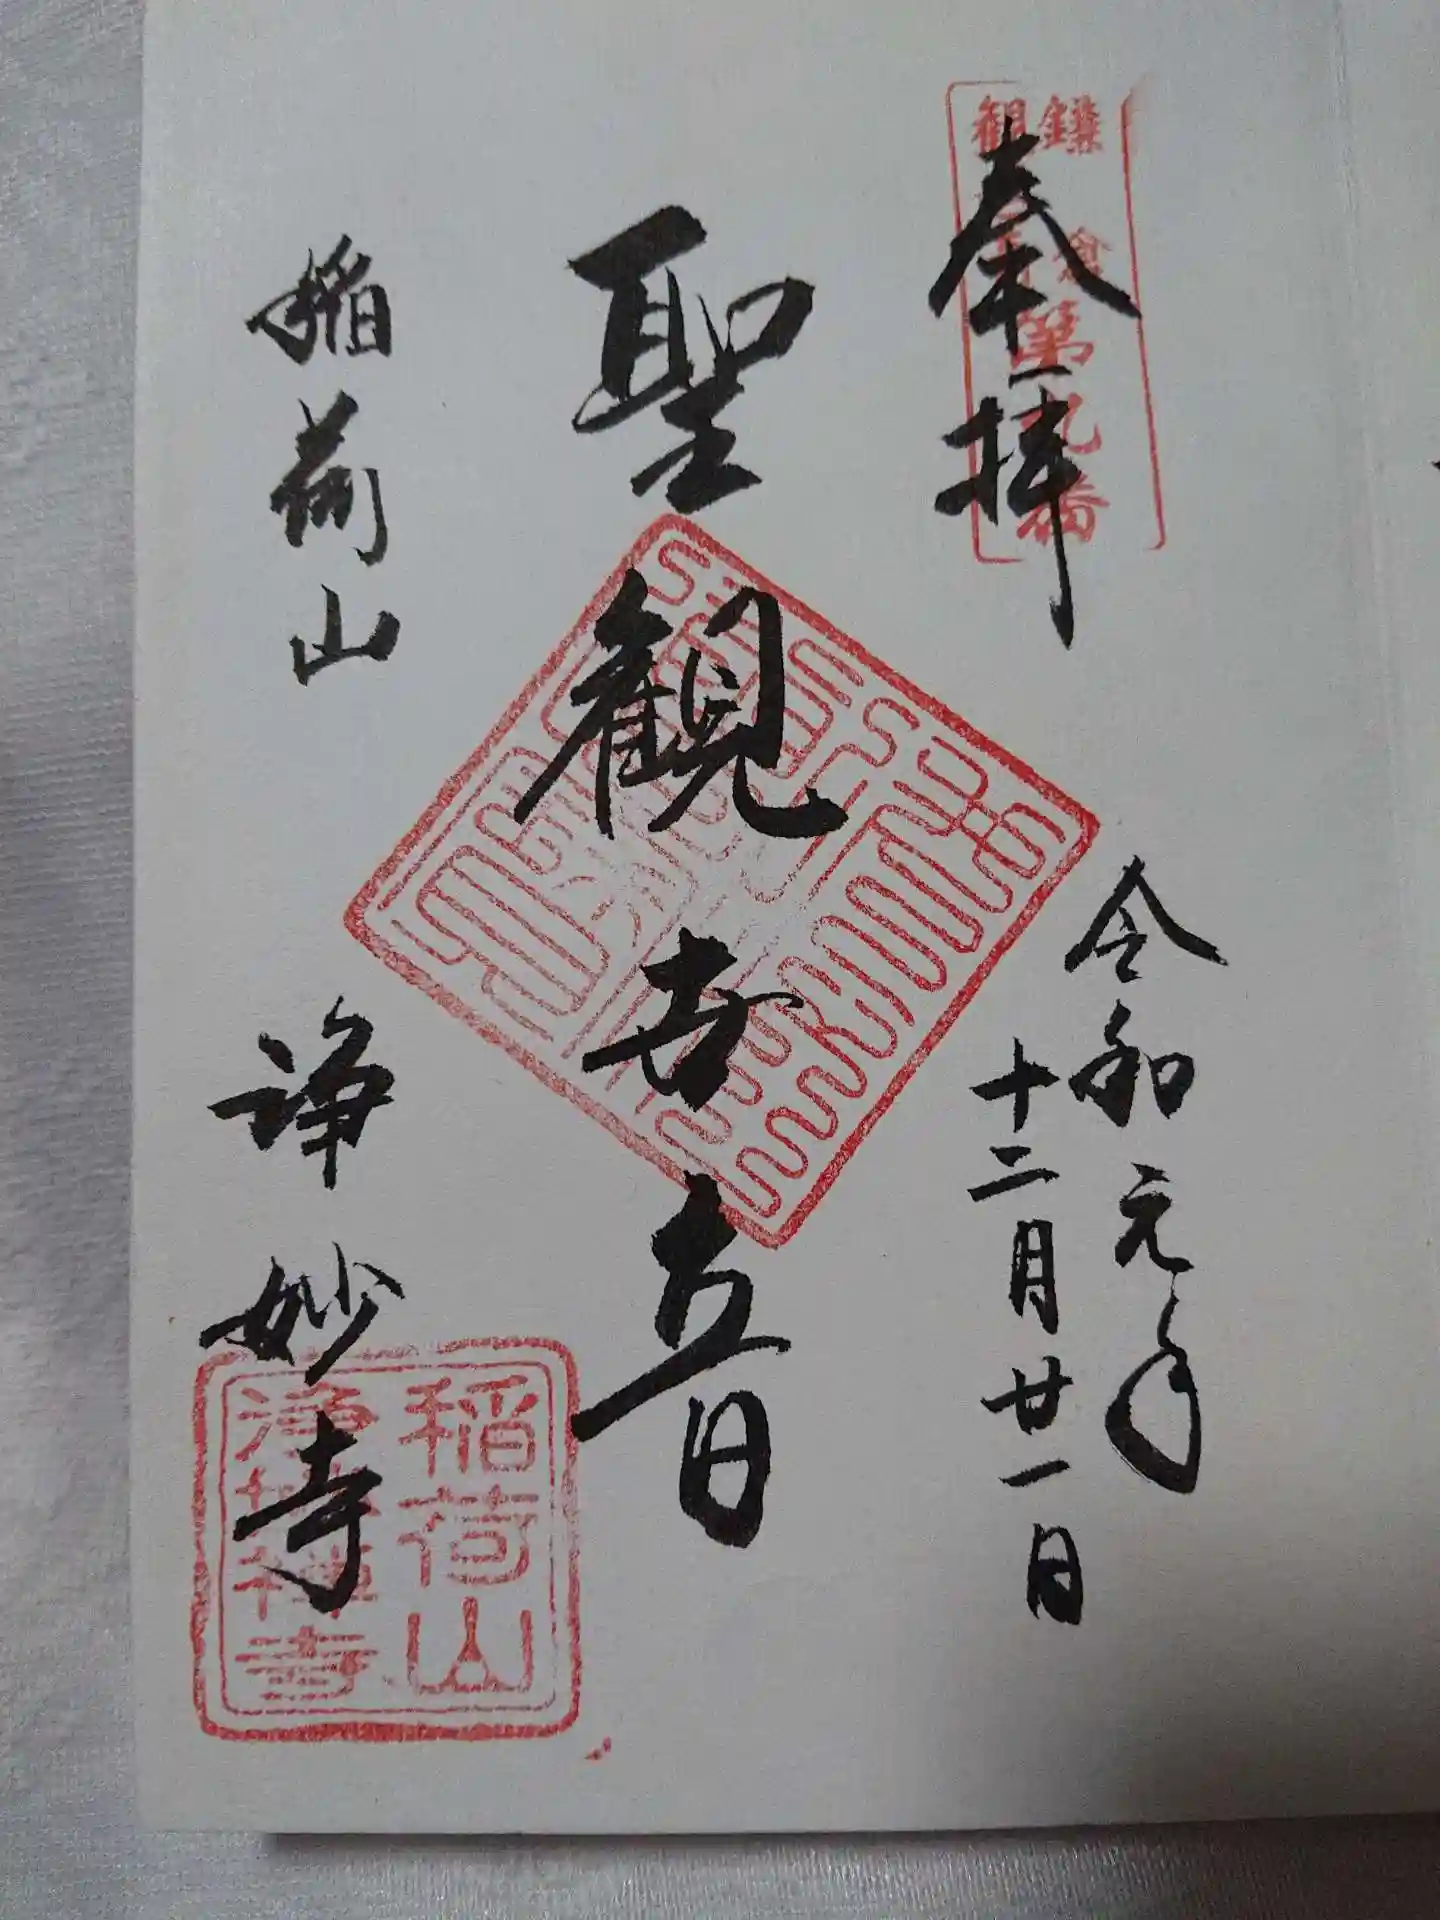 奉拝
鎌倉
観音
第九番
令和元年
十二月廿一日
聖観世音
稲荷山
浄妙寺
稲荷山
浄妙禅寺